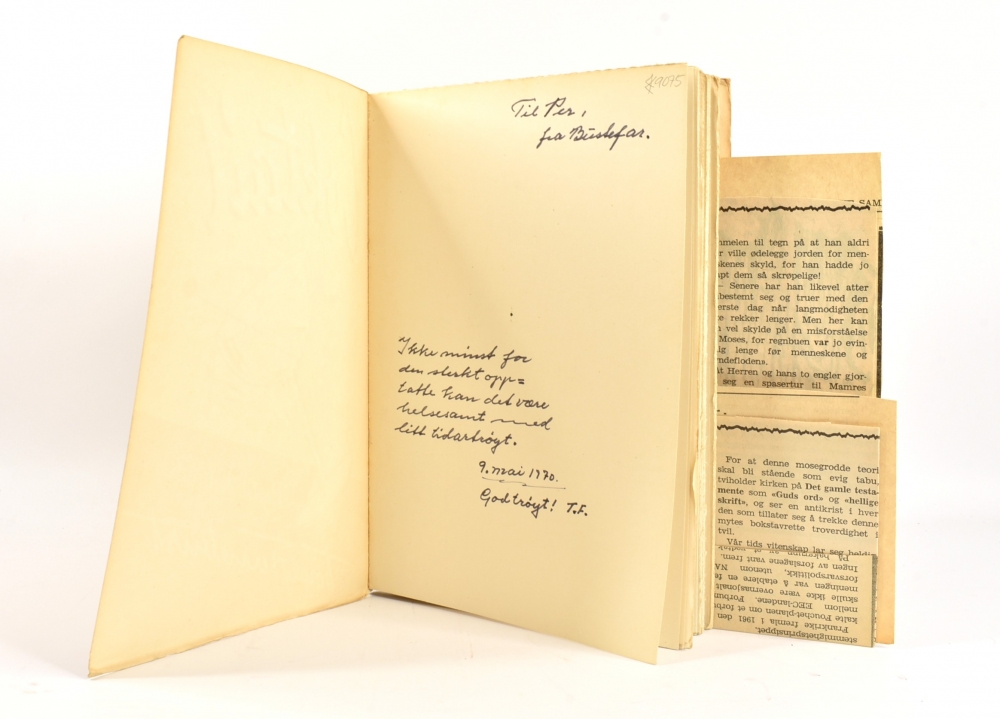 9075
Til Per,
fra Buskfar.
Ikke minst for
den sterkt opp=
tatte kan det være
helsesamt med
litt tidartrøyt.
9. mai 1970.
God trøyt! T.F.
SAM
mmelen til tegn på at han aldri
r ville ødelegge jorden for men-
skenes skyld, for han hadde jo
apt dem så skrøpelige!
— Senere har han likevel atter
bestemt seg og truer med den
erste dag når langmodigheten
ke rekker lenger. Men her kan
n vel skylde på en misforståelse
Moses, for regnbuen var jo evin-
lig lenge før menneskene og
ndefloden».
åt Herren og hans to engler gjor-
seg en spasertur til Mamres
For at denne mosegrodde teori
skal bli stående som evig tabu,
tviholder kirken på Det gamle testa-
mente som «Guds ord» og «hellige
skrift», og ser en antikrist i hver
den som tillater seg å trekke denne
mytes bokstavrette troverdighet i
tvil.
Vår tids vitenskap lar seg heldi-
stemmighetsprinsippet.
Frankrike fremla i 1961 den
kalte Fouchet-planen om et forbu
mellom EEC-landene. Forbun
skulle ikke være overnasjonalt
meningen var å etablere en fe
forsvarspolitikk, utenom NA
Ingen av forslagene vant frem.
På bakgrunn av et